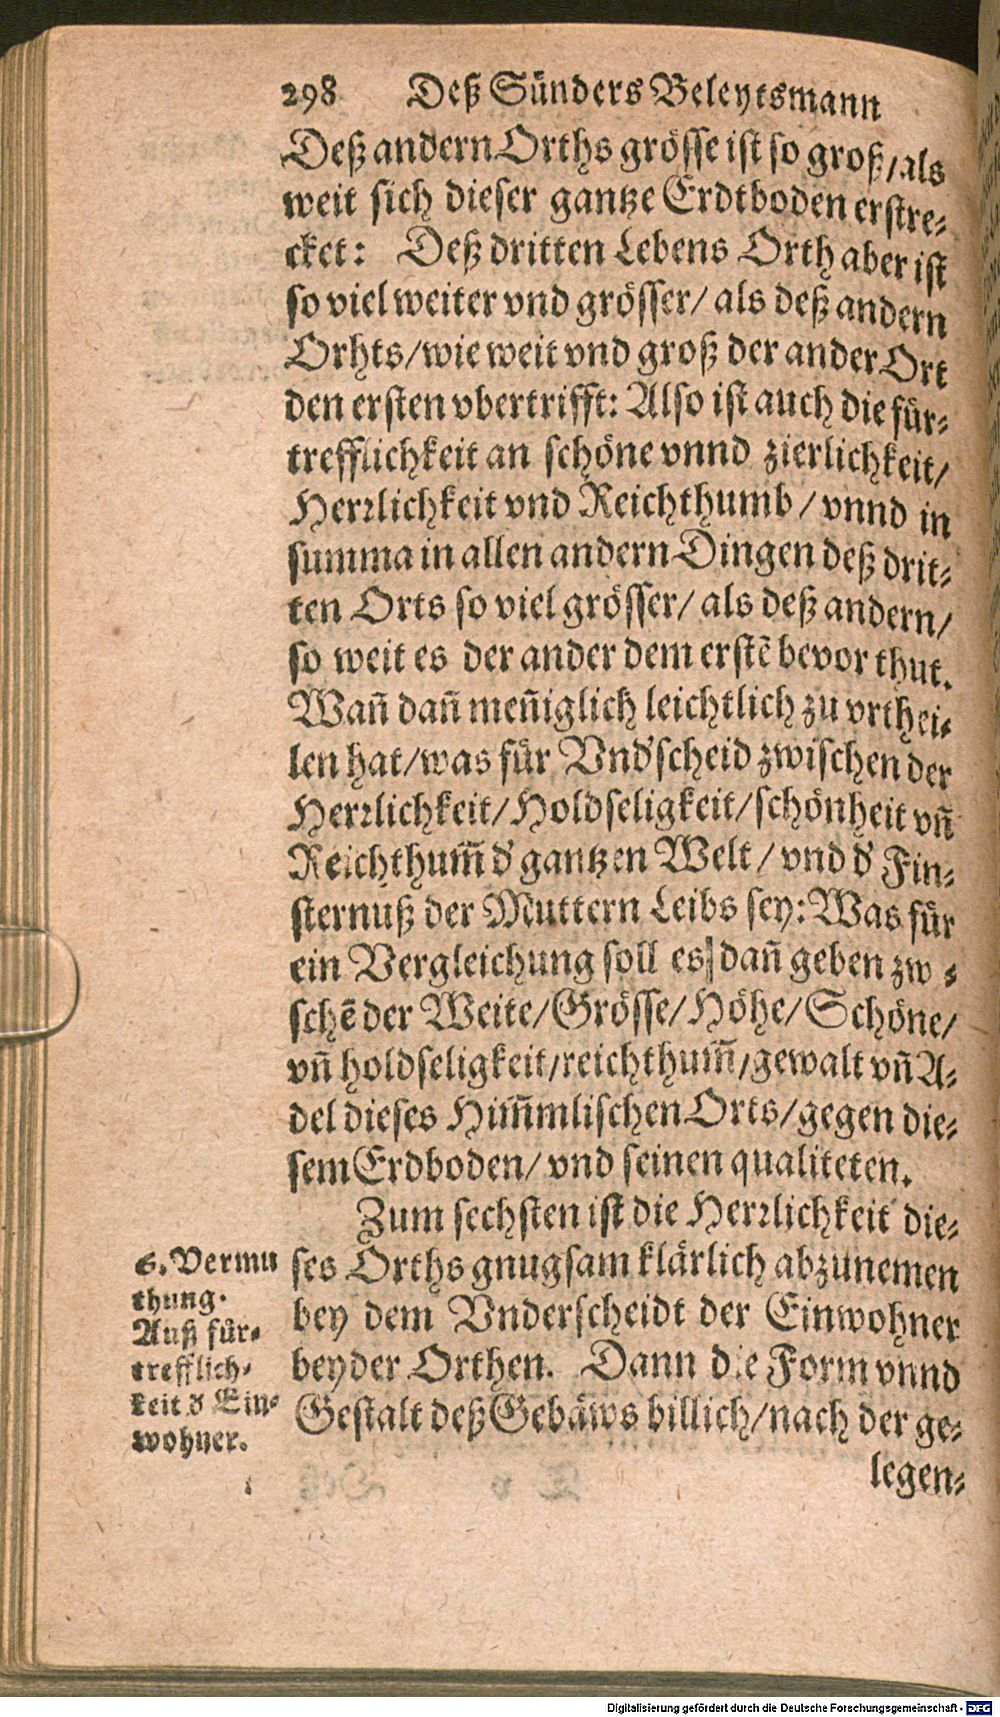 298 Deß Sünders Beleytsmann
Deß andern Orths grösse ist so groß / als
weit sich dieser gantze Erdtboden erstre-
cket: Deß dritten Lebens Orth aber ist
so viel weiter vnd grösser / als deß andern
Orhts / wie weit vnd groß der ander Ort
den ersten vbertrifft: Also ist auch die für-
trefflichkeit an schöne vnnd zierlichkeit /
Herrlichkeit vnd Reichthumb / vnnd in
summa in allen andern Dingen deß drit-
ten Orts so viel grösser / als deß andern /
so weit es der ander dem erstē bevor thut.
Wañ dañ meñiglich leichtlich zu vrthei-
len hat / was für Vnd'scheid zwischen der
Herrlichkeit / Holdseligkeit / schönheit vñ
Reichthum̃ d' gantzen Welt / vnd d' Fin-
sternuß der Muttern Leibs sey: Was für
ein Vergleichung soll es dañ geben zw -
schē der Weite / Grösse / Höhe / Schöne /
vñ holdseligkeit / reichthum̃ / gewalt vñ A-
del dieses Him̃mlischen Orts / gegen die-
sem Erdboden / vnd seinen qualiteten.
Zum sechsten ist die Herrlichkeit die-
ses Orths gnugsam klärlich abzunemen
bey dem Vnderscheidt der Einwohner
beyder Orthen. Dann die Form vnnd
Gestalt deß Gebäws billich / nach der ge-
legen-
6. Vermu
thung.
Auß für-
trefflich-
keit d' Ein-
wohner.
Digitalisierung gefördert durch die Deutsche Forschungsgemeinschaft - DFG